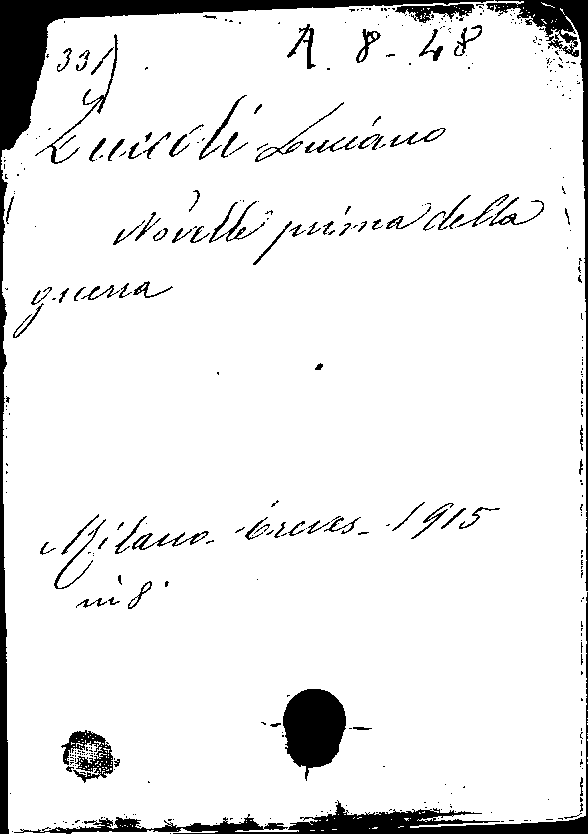 331) A. 8 - 48
Zuccoli Luciano
Novelle prima della
guerra
Milano - Treves - 1915
in 8°